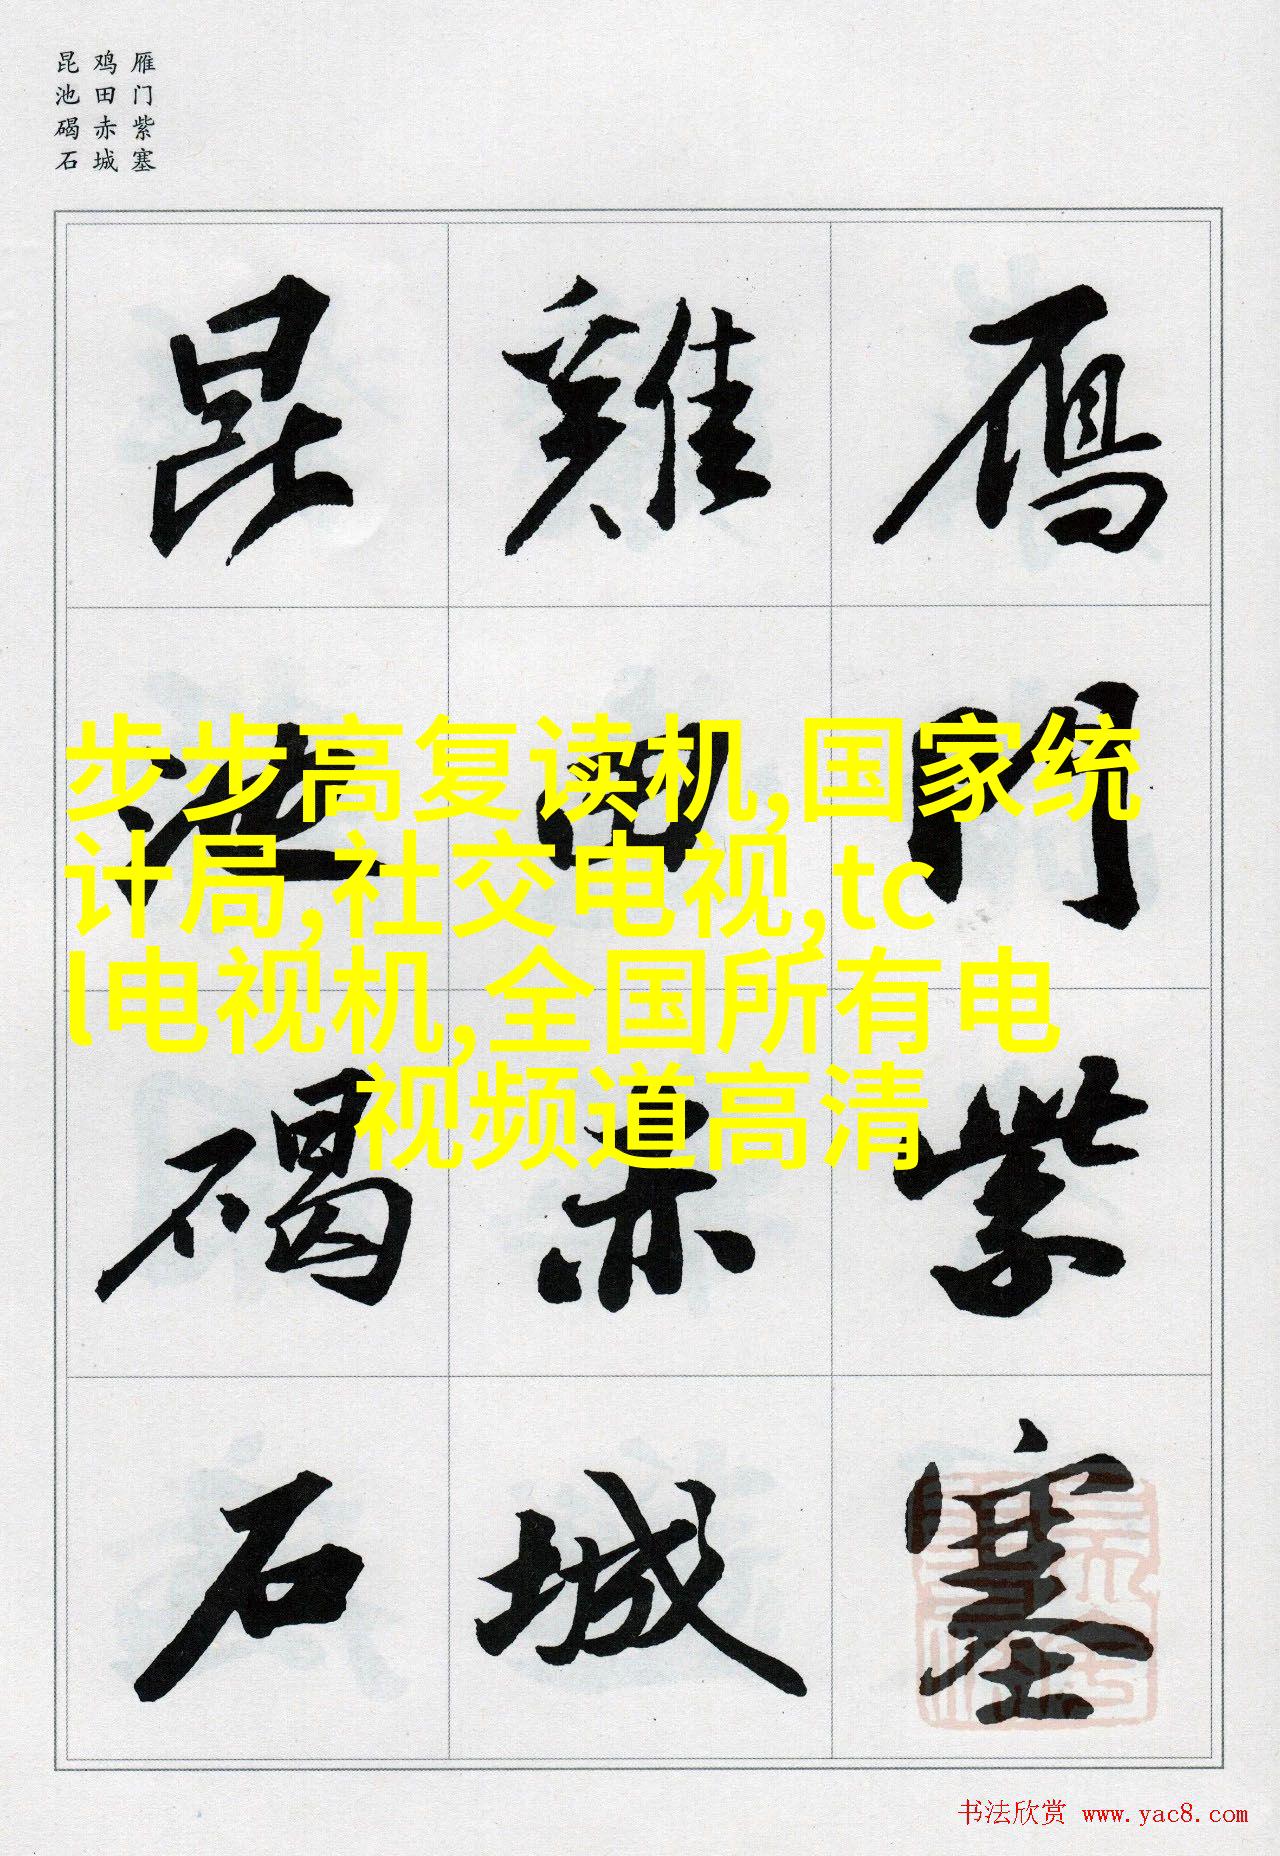 雁门紫塞
鸡田赤城
昆池碣石
鴈門紫塞
雞田赤城
昆池碣石
步步高复读机,国家统
计局,社交电视,tc
l电视机,全国所有电
视频道高清
书法欣赏 www.yac8.com